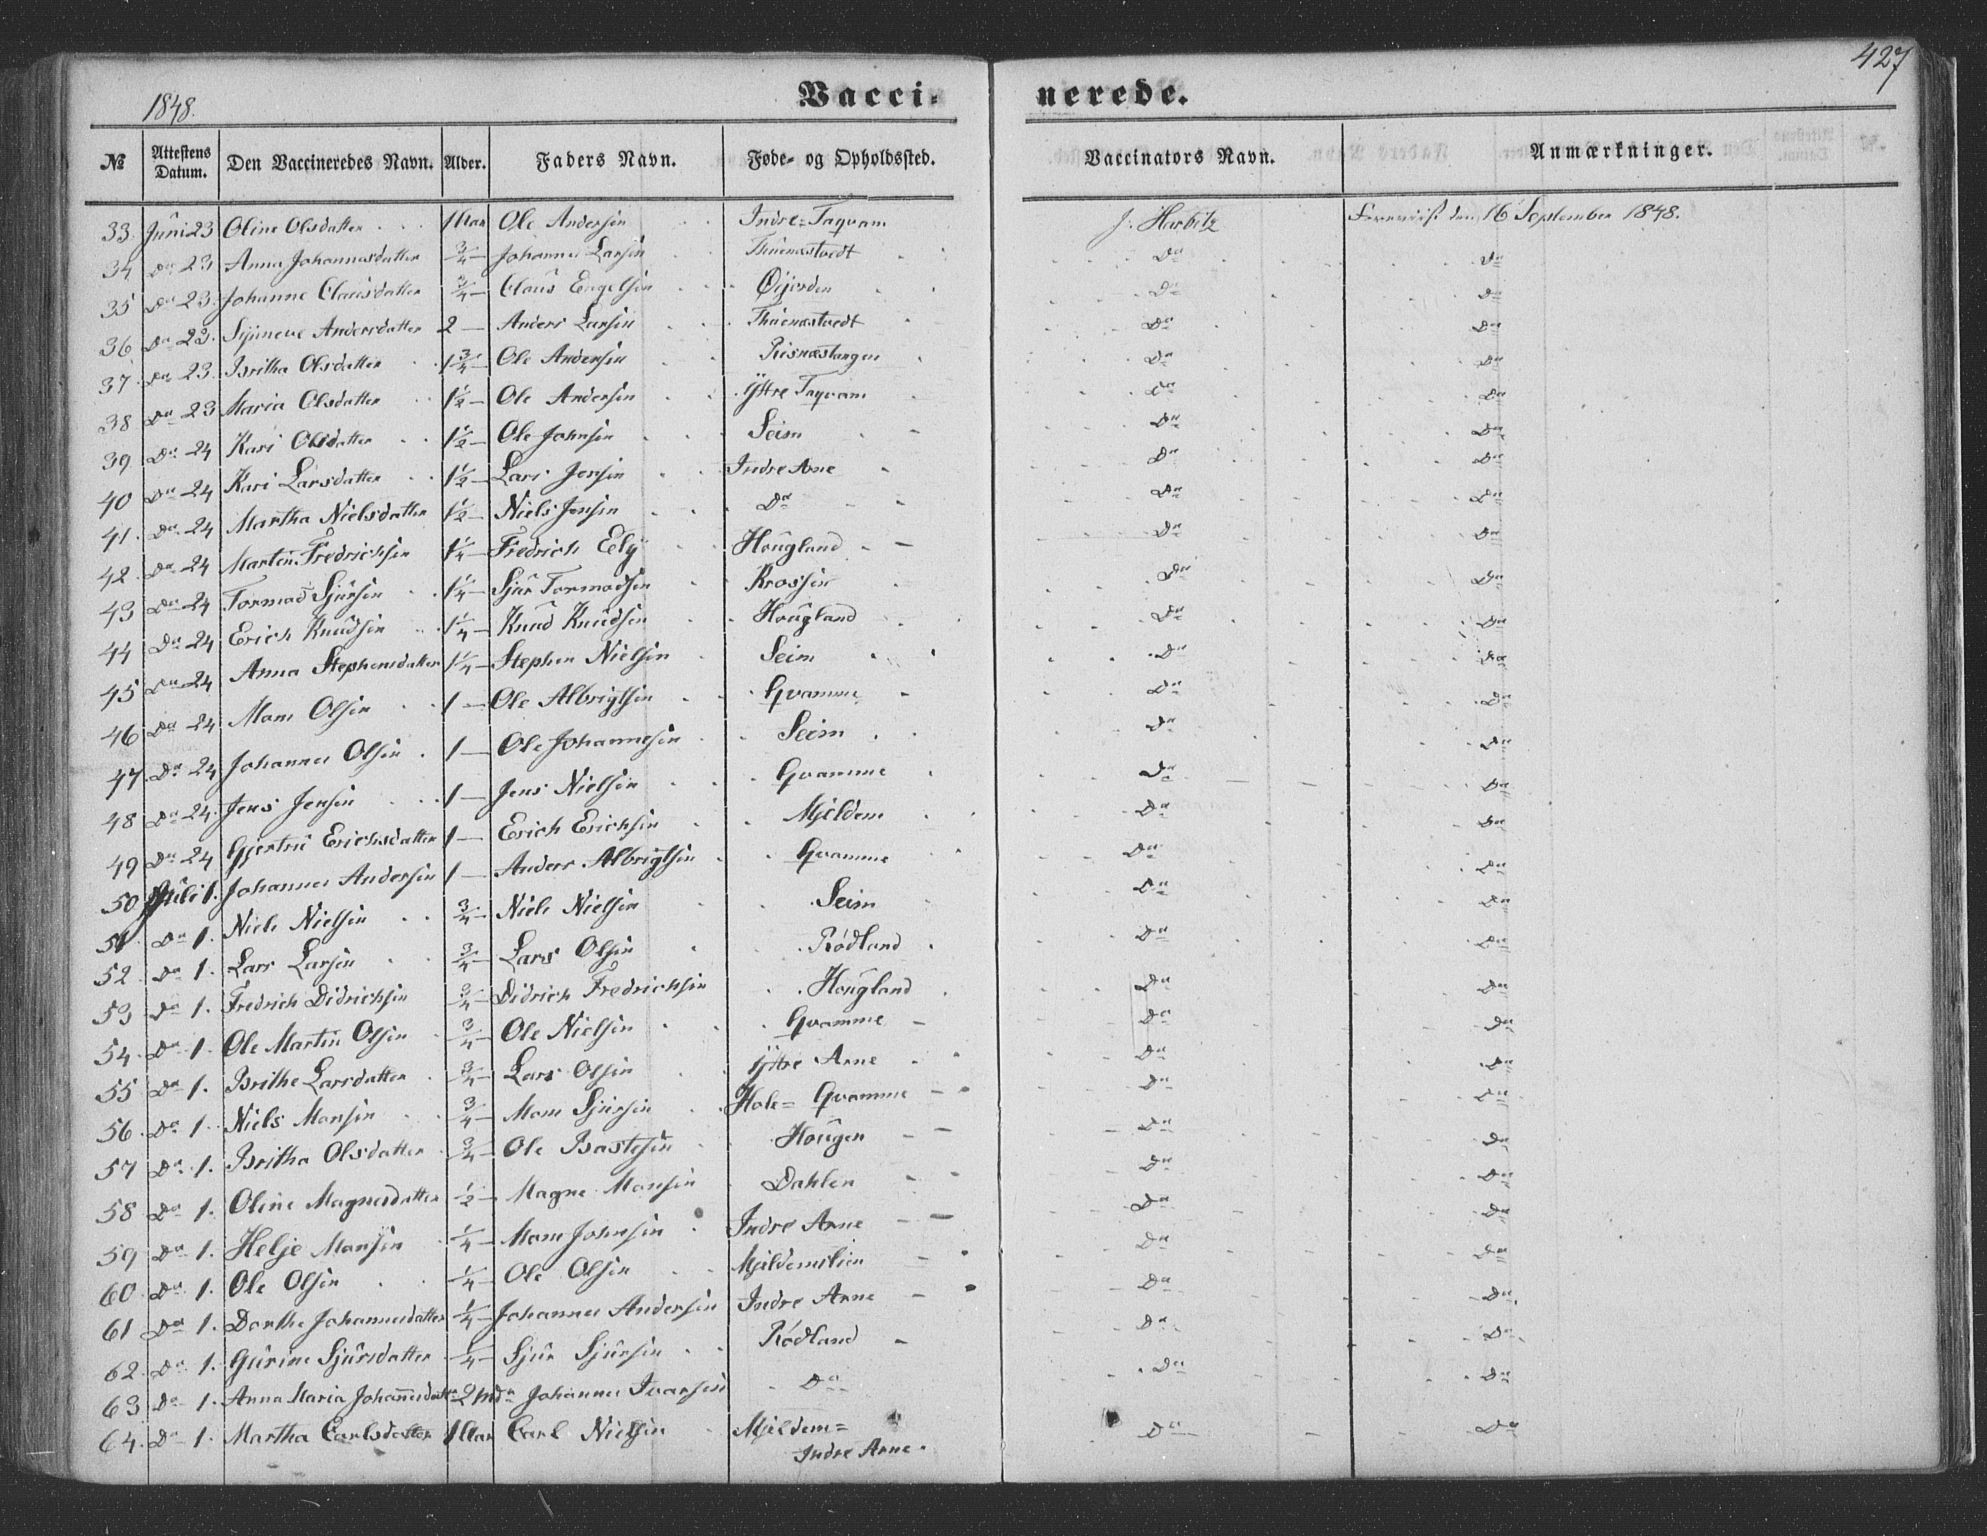 427
1848.
Vacci- nerede.
№ Attestens Datum. Den Vaccineredes Navn. Alder. Faders Navn. Føde- og Opholdssted. Vaccinators Navn. Anmærkninger.
33. Juni 23 Oline Olsdatter 1 Aar Ole Andersen Indre-Taqvam J. Harbitz den 16 September 1848.
34 Do 23 Anna Johannesdatter 3/4 — Johannes Larsen Do Do
35 Do 23. Johanne Clausdatter 3/4 — Claus Engelsen Do Do
36 Do 23. Synneve Andersdatter 2 — Anders Larsen Do Do
37 Do 23. Britha Olsdatter 1 3/4 — Ole Andersen Do Do
38 Do 23 Maria Olsdatter 1 1/2 — Ole Andersen Yttre Taqvam Do Do
39 Do 24 Kari Olsdatter 1 1/2 — Ole Johnsen Seim Do Do
40 Do 24 Kari Larsdatter 1 1/2 — Lars Jensen Indre Arne Do Do
41. Do 24 Martha Nielsdatter 1 1/2 — Niels Jensen Do Do Do
42. Do 24 Martin Fredrichsen 1 1/4 — Fredrich Hougland Do Do
43 Do 24 Tormod Sjursen 1 1/4 — Sjur Tormodsen Krossen Do Do
44 Do 24 Erich Knudsen 1 1/4 — Knud Knudsen Hougland Do Do
45 Do 24 Anna Stephensdatter 1 1/4 — Stephen Nielsen Seim Do Do
46 Do 24 Mons Olsen 1 — Ole Albrigtsen Gvamme Do Do
47. Do 24 Johannes Olsen 1 — Ole Johannesen Seim Do Do
48 Do 24. Jens Jensen 1 — Jens Nielsen Gvamme Do Do
49 Do 24 Gjertru Erichsdatter 1 — Erich Erichsen Mjeldem Do Do
50 Juli 1. Johannes Andersen 1 — Anders Albrigtsen Gvamme Do Do
51 Do 1. Niels Nielsen 3/4 — Niels Nielsen Seim Do Do
52. Do 1. Lars Larsen 3/4 — Lars Olsen Rødland Do Do
53 Do 1. Fredrich Didrichsen 3/4 — Didrich Fredrichsen Hougland Do Do
54. Do 1. Ole Martin Olsen 3/4 — Ole Nielsen Gvamme Do Do
55 Do 1. Brithe Larsdatter 3/4 — Lars Olsen Yttre Arne Do Do
56. Do 1. Niels Monsen 3/4 — Mons Sjursen Hole- Gvamme Do Do
57 Do 1. Britha Olsdatter 3/4 — Ole Bastesen Hougen Do Do
58 Do 1. Oline Magnesdatter 1/2 — Magne Monsen Dahlen Do Do
59 Do 1. Helje Monsen 1/4 — Mons Johnsen Indre Arne Do Do
60 Do 1. Ole Olsen 1/4 — Ole Olsen Mjeldemslien Do Do
61 Do 1. Dorthe Johannesdatter 1/4 — Johannes Andersen Indre Arne Do Do
62. Do 1. Gurine Sjursdatter 1/4 — Sjur Sjursen Rødland Do Do
63 Do 1. Anna Maria Johannesdatter 2 Mdr Johannes Ivarsen Do Do Do
64. Do 1. Martha Carlsdatter 1 Aar Carl Nielsen Mjeldem- Do Do
Indre Arne.